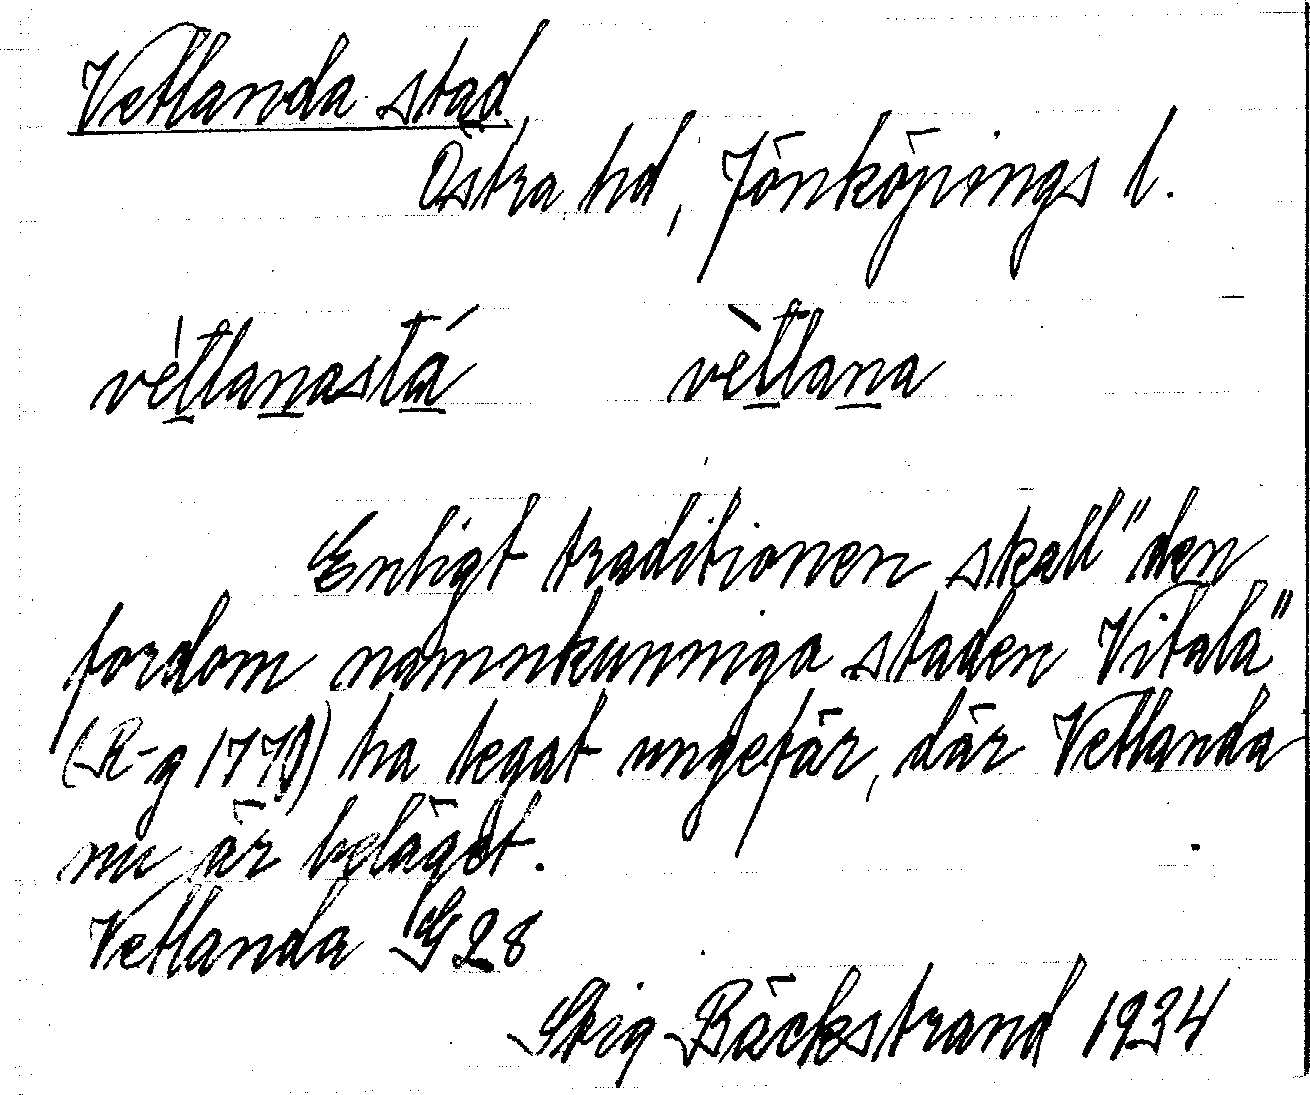 Vetlanda stad
Östra hd, Jönköpings l.
vètlanastá vètlana
Enligt traditionen skall "den
fordom namnkunniga staden Vitala"
(R-g 1770) ha legat ungefär, där Vetlanda
nu är beläget.
Vetlanda G 28
Stig Bäckstrand 1934